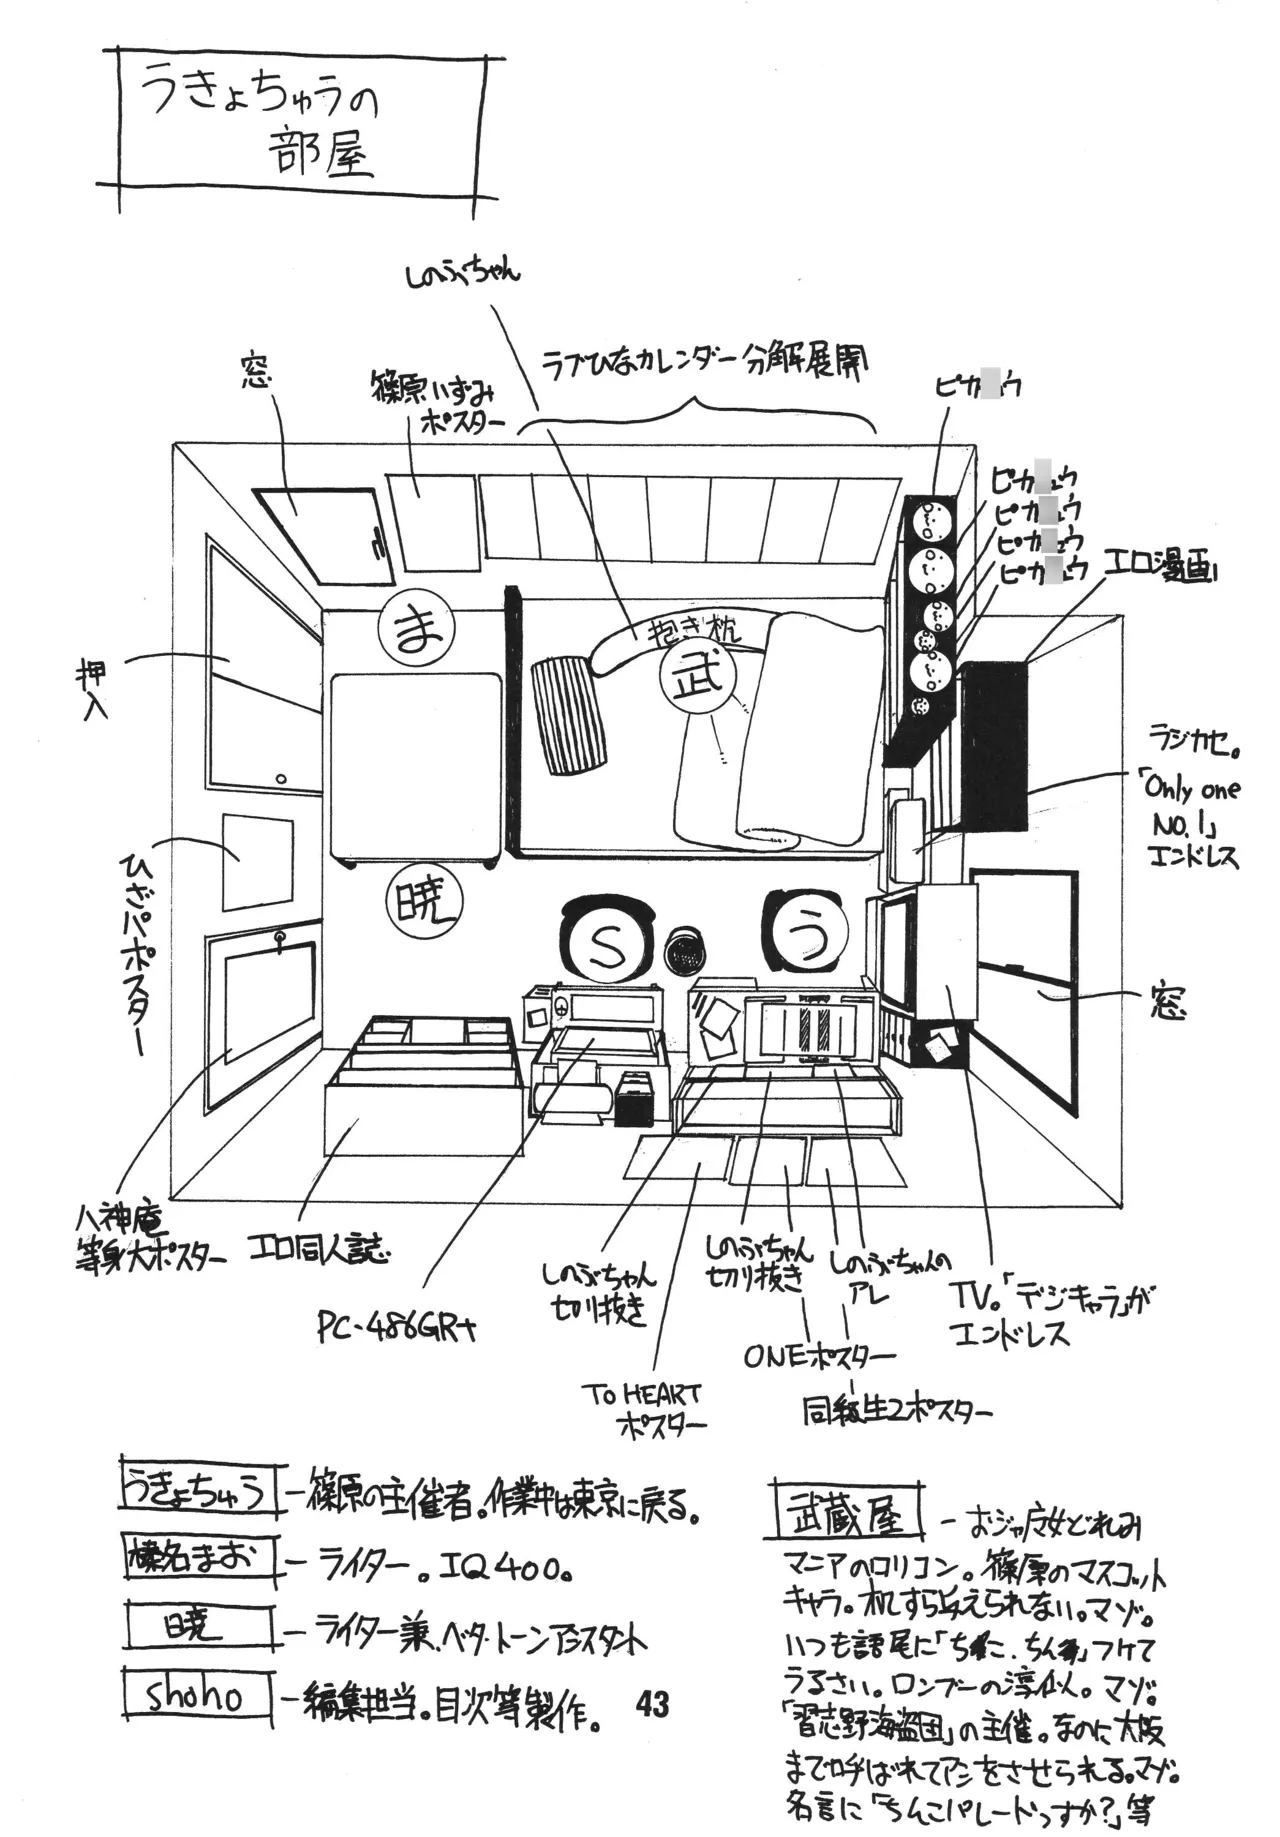 うきょちゅうの
部屋
しのぶちゃん
ラブひなカレンダー分解展開
窓
篠原いずみ
ポスター
ピカ ュウ
ピカ ュウ
ピカ ュウ
ピカ ュウ
ピカ ュウ
エロ漫画
ま
抱き枕
武
押入
ラジカセ。
「Only one
NO.1」
エンドレス
ひざパポスター
暁
S
う
窓
八神庵
等身大ポスター
エロ同人誌
PC-486GR+
しのぶちゃん
切り抜き
しのぶちゃん
切り抜き
しのぶちゃんの
アレ
TV。「デジキャラ」が
エンドレス
ONEポスター
To HEART
ポスター
同級生2ポスター
うきょちゅう - 篠原の主催者。作業中は東京に戻る。
榛名まお - ライター。IQ400。
暁 - ライター兼、ベタ・トーンアシスタント
shoho - 編集担当。目次等製作。
43
武蔵屋 - おジャ魔女どれみ
マニアのロリコン。篠原のマスコット
キャラ。机すら与えられない。マゾ。
いつも語尾に「ち こ、ちん 」つけて
うるさい。ロンブーの淳似。マゾ。
「習志野海盗団」の主催。なのに大阪
まで呼ばれてアシをさせられる。マゾ。
名言に「ちんこパレードっすか?」等